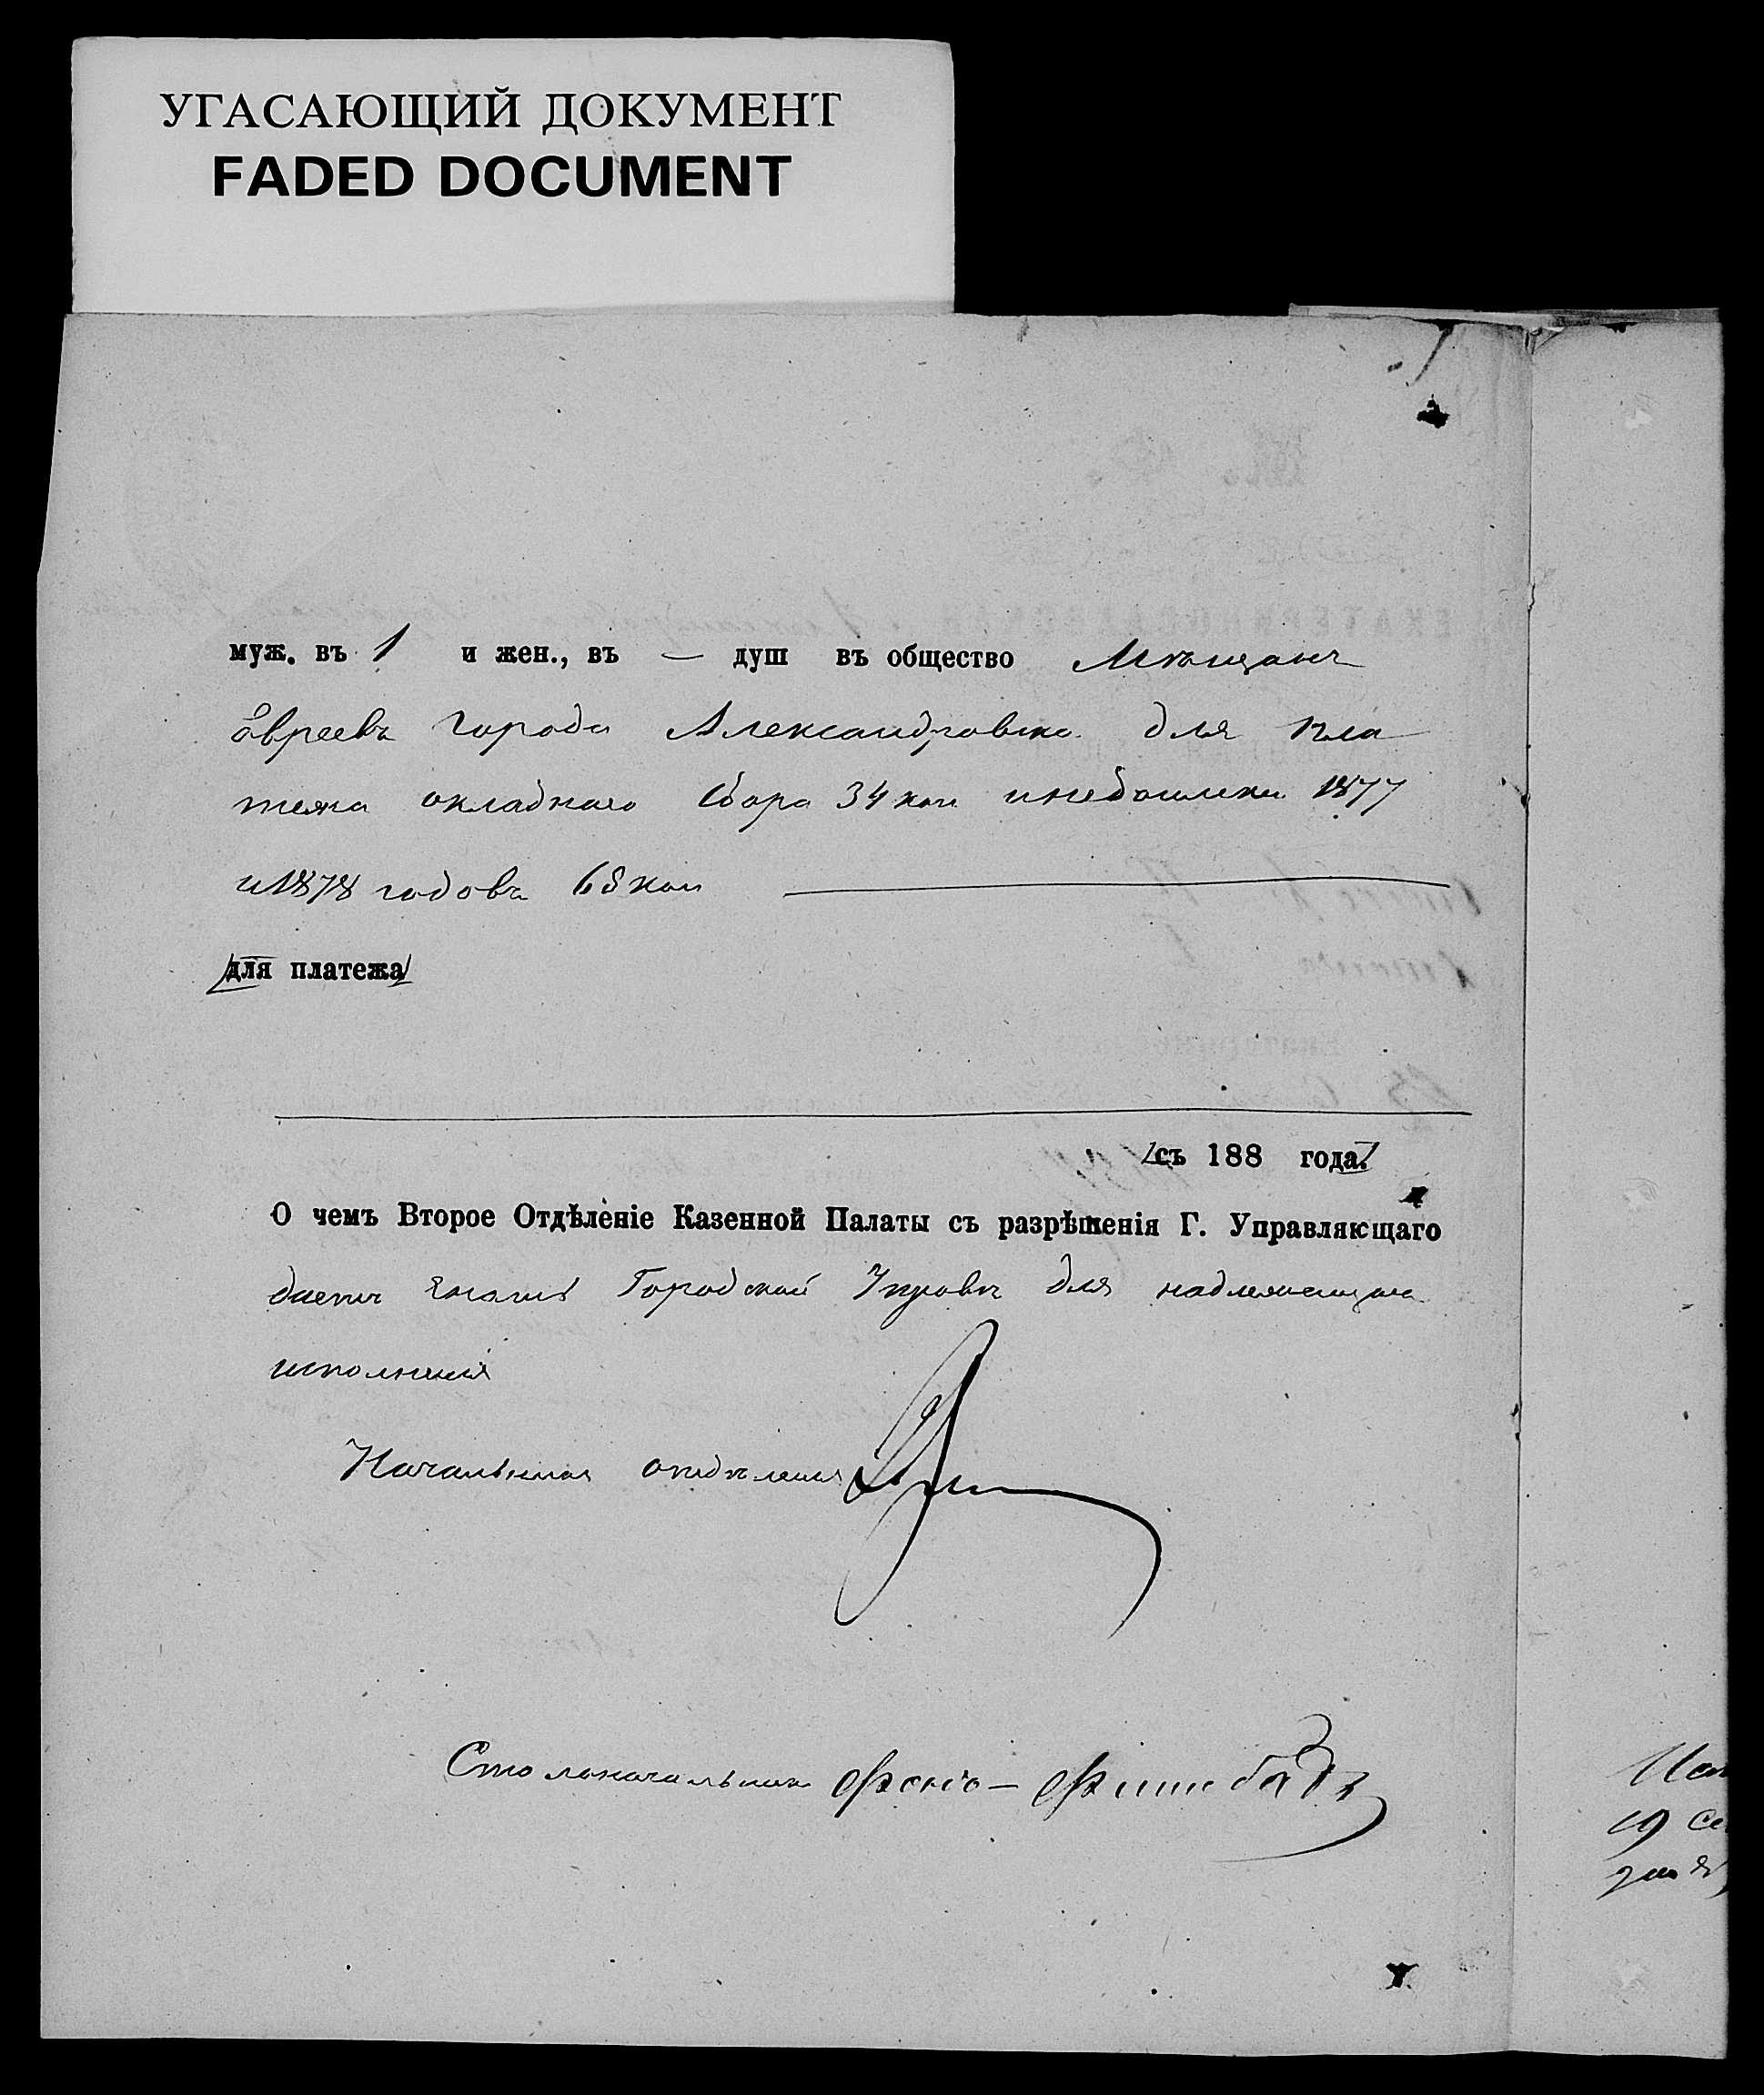 УГАСАЮЩИЙ ДОКУМЕНТ
FADED DOCUMENT
муж. въ 1 и жен., въ — душ въ общество Мѣщанъ
евреевъ города Александровска для пла
тежа окладнаго сбора 34 коп и недоимки 1877
и 1878 годовъ 68 коп
для платежа
съ 188 года.
О чемъ Второе Отдѣленіе Казенной Палаты съ разрѣшенія Г. Управляющаго
даетъ знать Городской Управѣ для надлежащаго
исполненія
Начальникъ отдѣленія
Столоначальникъ
19 Се